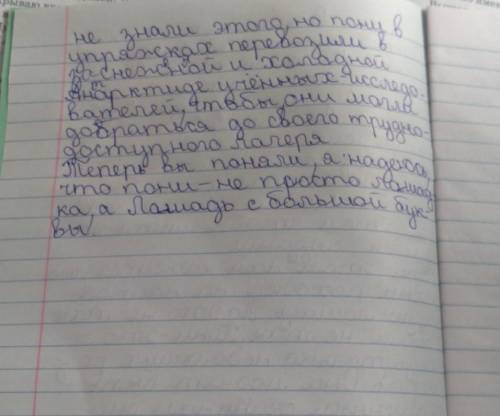 не знали этого, но пони в
упряжках перевозили в
заснежной и холодной
Антарктиде учённых исследо-
вателей, чтобы они могли
добраться до своего трудно-
доступного лагеря.
Теперь вы поняли, я надеюсь,
что пони - не просто лошад-
ка, а Лошадь с большой бук-
вы.